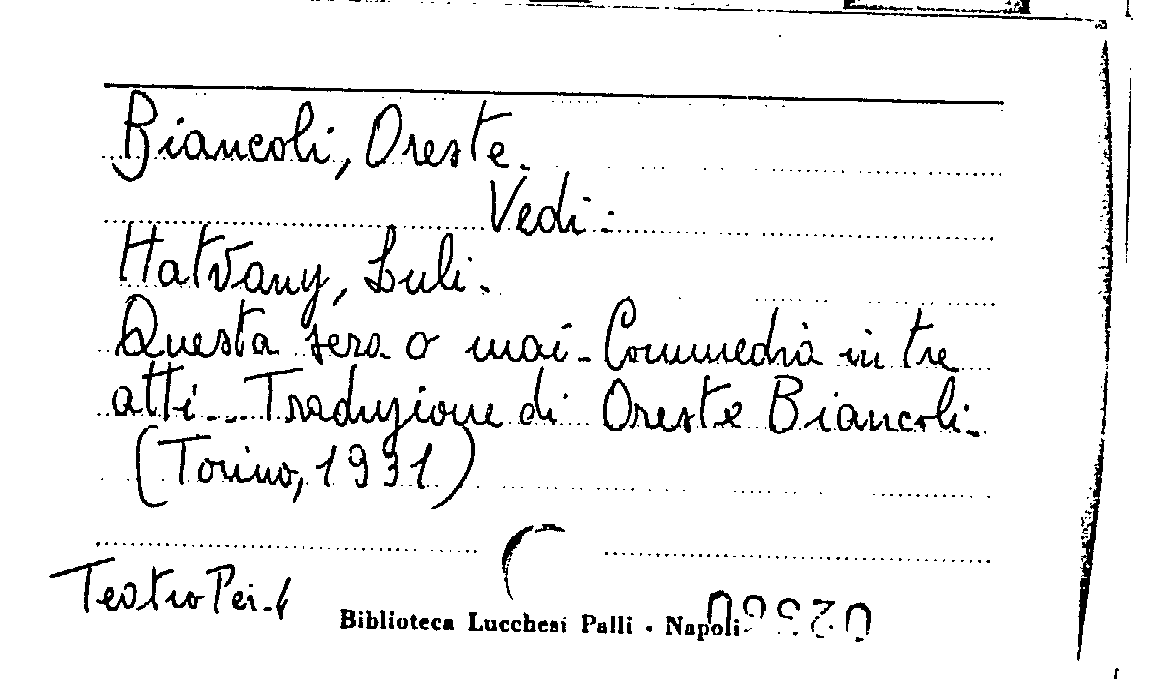 Biancoli, Oreste.
Vedi:
Hatvany, Luli.
Questa sera o mai - Commedia in tre
atti - Traduzione di Oreste Biancoli -
(Torino, 1931)
Teatro Per.
Biblioteca Lucchesi Palli - Napoli